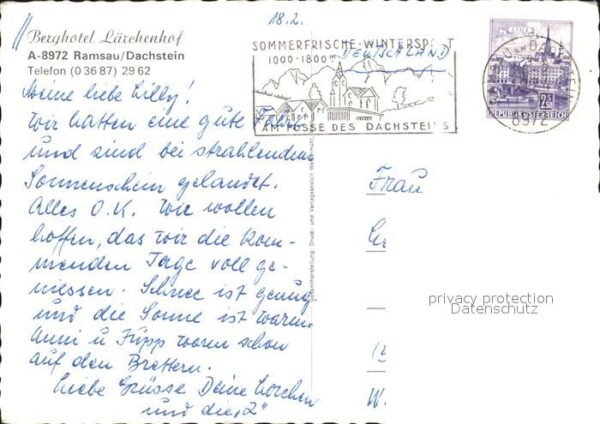 18.2.
Berghotel Lärchenhof
A-8972 Ramsau/Dachstein
Telefon (0 36 87) 29 62
Meine liebe Lilly!
Wir hatten eine gute Fahrt
und sind bei strahlendem
Sonnenschein gelandet.
Alles O.K. Wir wollen
hoffen, das wir die kom-
menden Tage voll ge-
niessen. Schnee ist genug
und die Sonne ist warm.
Anni u Jupp waren schon
auf den Brettern.
Liebe Grüsse Deine Lorchen
und die „2"
SOMMERFRISCHE-WINTERSPORT
1000-1800
DEUTSCHLAND
AM FUSSE DES DACHSTEINS
8972
REPUBLIK ÖSTERREICH
Frau
W.
privacy protection
Datenschutz